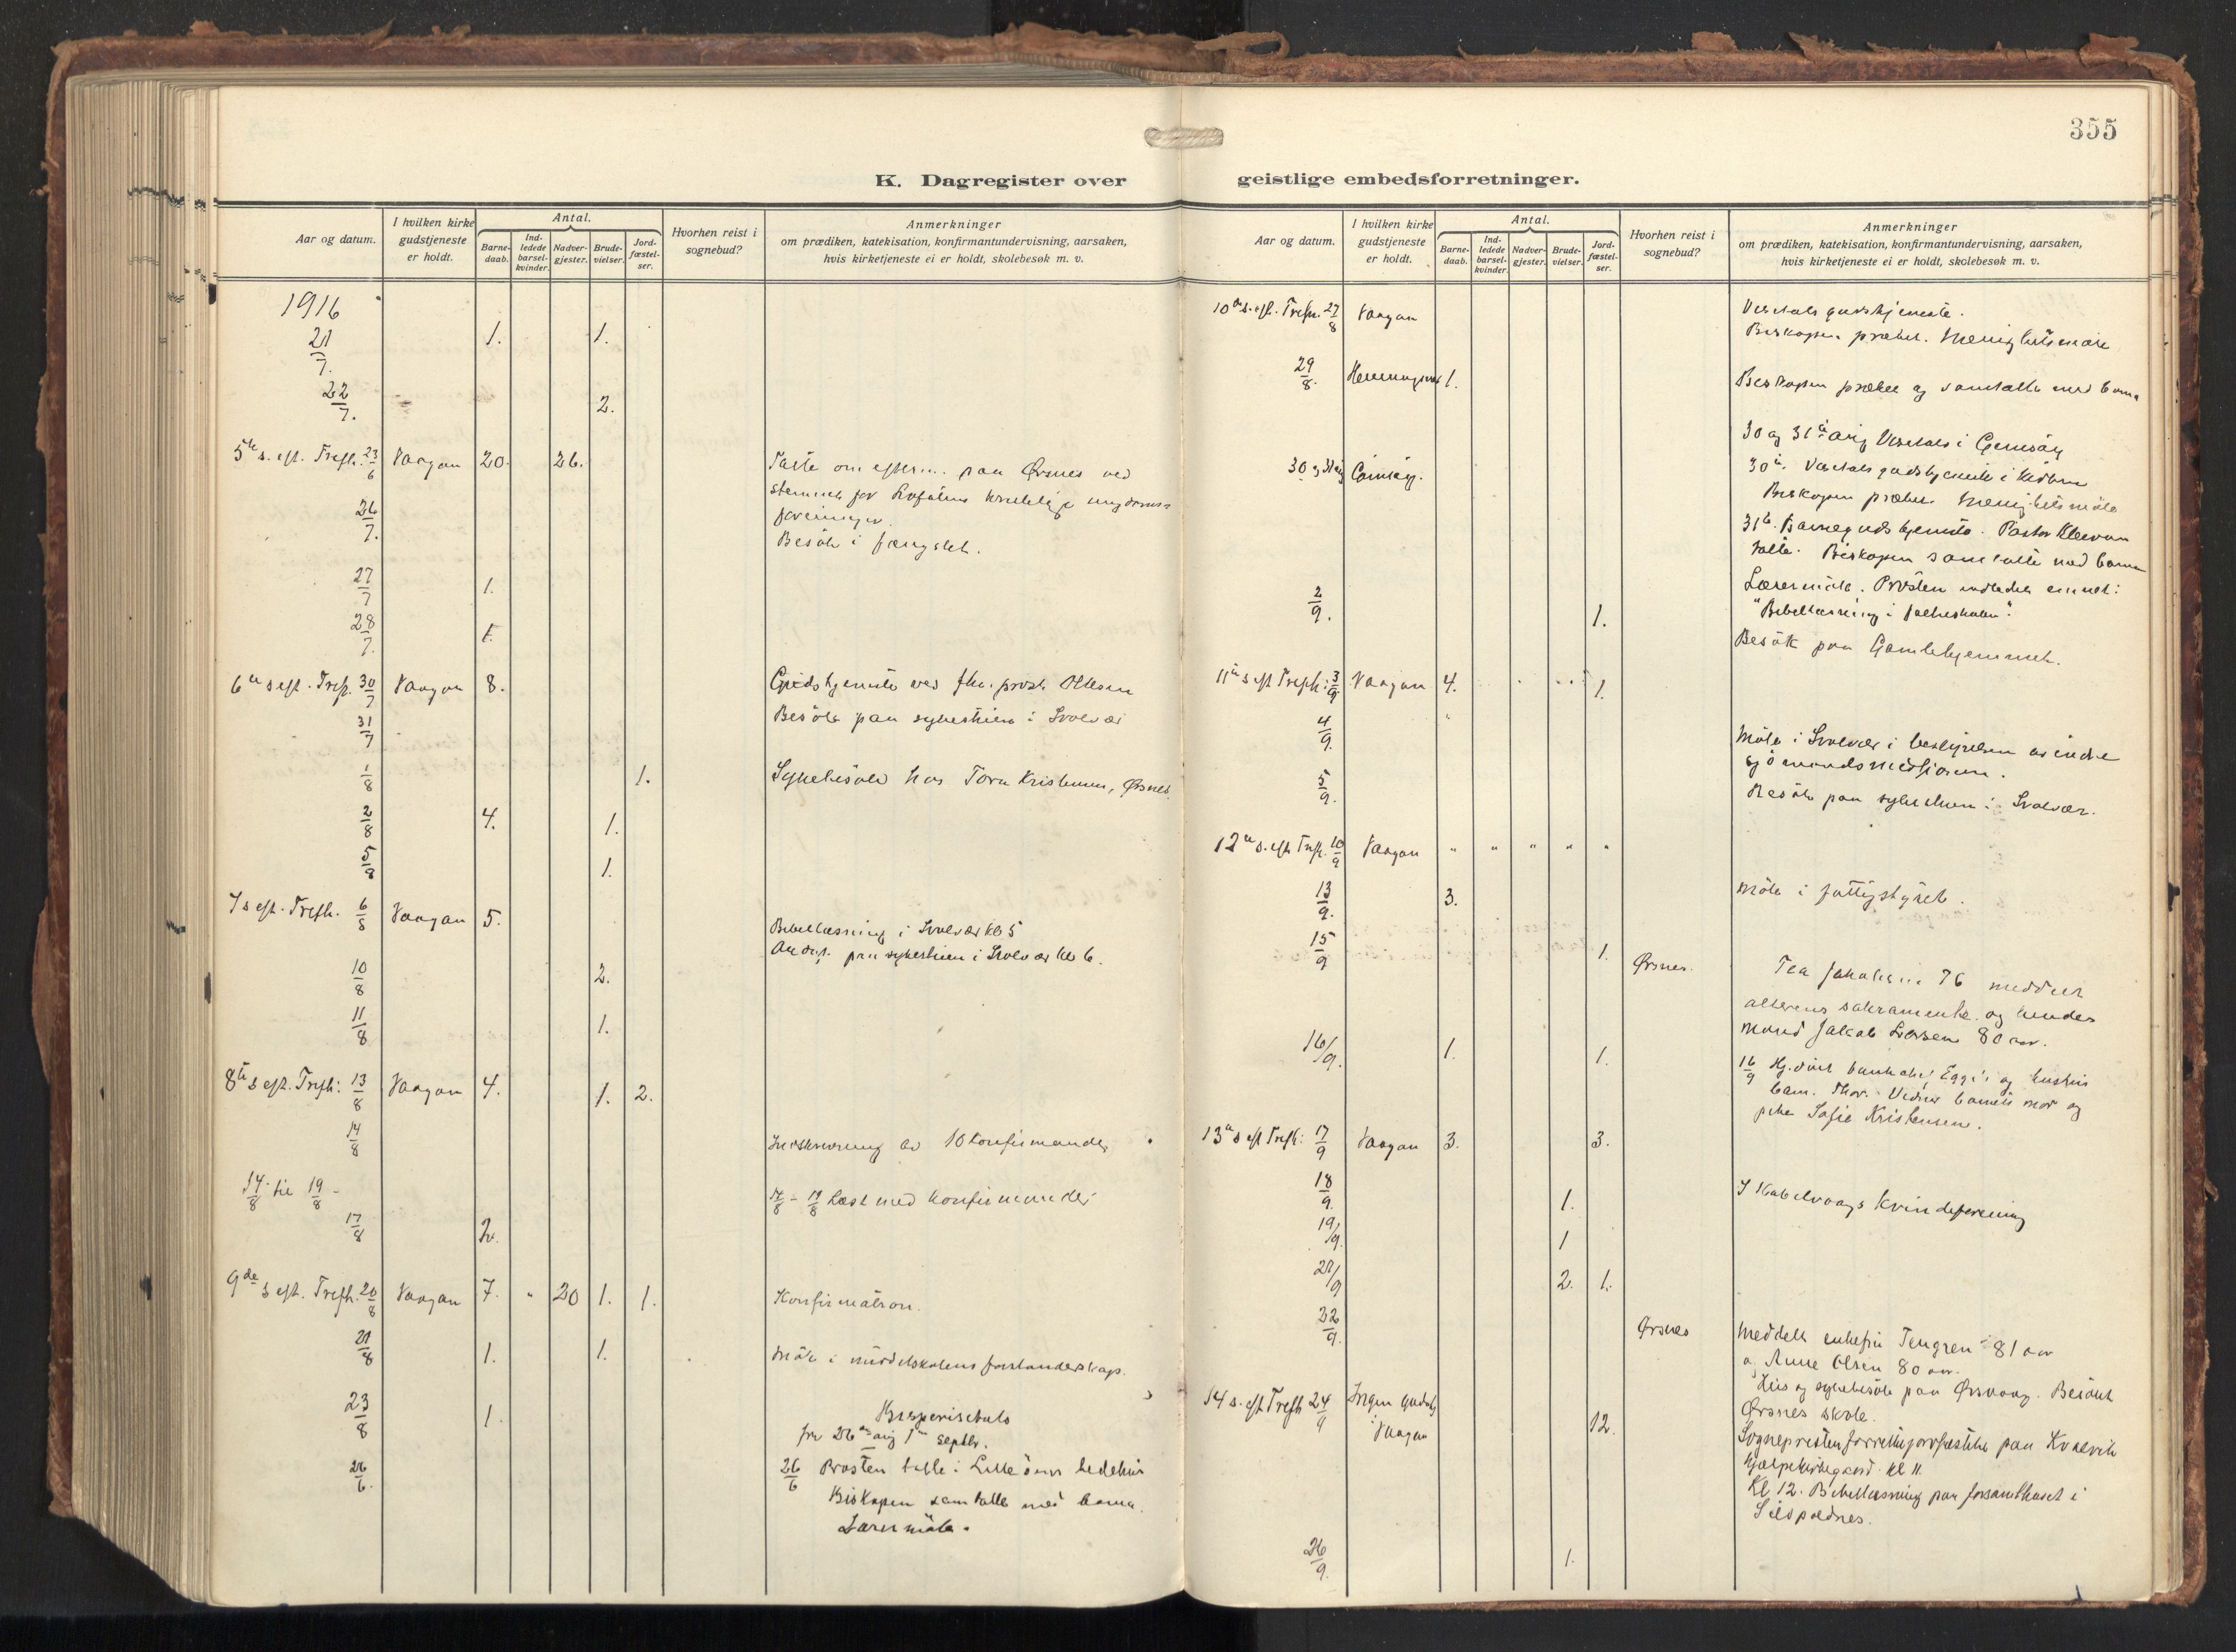 355
K. Dagregister over geistlige embedsforretninger.
Aar og datum.
I hvilken kirke gudstjeneste er holdt.
Antal.
Barne-daab.
Ind-ledede barsel-kvinder.
Nadver-gjester.
Brude-vielser.
Jord-fæstel-ser.
Hvorhen reist i sognebud?
Anmerkninger
om prædiken, katekisation, konfirmantundervisning, aarsaken,
hvis kirketjeneste ei er holdt, skolebesøk m. v.
1916
21/7. 1. 1.
22/7. 2.
5te s. eft. Trefh. 23/6 Vaagan 20. 26. Talte om efterm. paa Ørsnes ved
stevnet for Lofotens kristelige ungdoms
foreninger.
26/7. Besök i fængslet.
27/7 1.
28/7. 1.
6te s eft. Tref. 30/7 Vaagan 8. Gudstjeneste ved fhv. prost
31/7 Besök paa sykestuen i Svolvær
1/8 1. Sykebesök hos Tora Kristensen, Ørsnes.
2/8 4. 1.
5/8 1.
7 s eft. Trefh. 6/8 Vaagan 5. Bibellæsning i Svolvær kl 5
Andagt paa sykestuen i Svolvær kl 6.
10/8 2.
11/8 1.
8te s eft. Trefh: 13/8 Vaagan 4. 1. 2.
14/8 Indskrivning av 10 konfirmander
14/8 til 19/8 - 14/8 - 19/8 Læst med konfirmander
17/8 2.
9de s eft. Trefh. 20/8 Vaagan 7. " 20 1. 1. Konfirmation.
21/8 1. 1. Möte i middelskolens forstanderskap.
23/8 1. Bispevisitats
fra 26 aug 1 septbr.
26/6. 26/6 Prosten talte i bedehus
Biskopen samtalte med barna.
Lærermöte.
Aar og datum.
I hvilken kirke gudstjeneste er holdt.
Antal.
Barne-daab.
Ind-ledede barsel-kvinder.
Nadver-gjester.
Brude-vielser.
Jord-fæstel-ser.
Hvorhen reist i sognebud?
Anmerkninger
om prædiken, katekisation, konfirmantundervisning, aarsaken,
hvis kirketjeneste ei er holdt, skolebesøk m. v.
10de s. eft. Trefh. 27/8 Vaagan Visitats gudstjeneste.
Biskopen præket. Menighetsmöte
29/8. Henningsvær 1. Biskopen præket og samtalte med barna
30 og 31 aug Gimsöy. 30 og 31te aug Visitats i Gimsöy
30te Visitats gudstjeneste i kirken
Biskopen præket. Menighetsmöte
31te. Barnegudstjeneste. Pastor Klevan
talte. Biskopen samtalte med barna
Lærermöte. Prosten indledet emnet:
"Bibellæsning i folkeskolen".
2/9. 1. Besök paa Gamlehjemmet.
11te s eft Trefh: 3/9 Vaagan 4. 1.
4/9. Möte i Svolvær i bestyrelsen av indre
sjömandsmissionen.
5/9. Besök paa sykestuen i Svolvær.
12te s. eft Trefh. 10/9 Vaagan " " " " "
13/9. 3. Möte i fattigstyret.
15/9 1. Ørsnes. Tea Jakobsen 76 meddelt
alterens sakramente og hendes
mand Jakob Larsen 80 aar.
16/9. 1. 1. 16/9 Hj.döpt bankchef Egge's og hustru
barn. Thor. Vidner barnets mor og
pike Sofie Kristensen.
13de s eft Trefh: 17/9 Vaagan 3. 3.
18/9. 1. I Kabelvaags Kvindeforening
19/9. 1
21/9 2. 1.
22/9. Ørsnes Meddelt enkefru Tengren 81 aar
og Anne Olsen 80 aar.
Hus og sykebesök paa Ørsvaag. Besökt
Ørsnes skole.
14 s. eft Trefh 24/9 Ingen gudstj i Vaagan 12. Sognepresten forrettet jordfæstelse paa Kvalvik
hjælpekirkegaard kl 11.
Kl 12. Bibellæsning paa forsamlhuset i
Sildpoldnes.
26/9. 1.